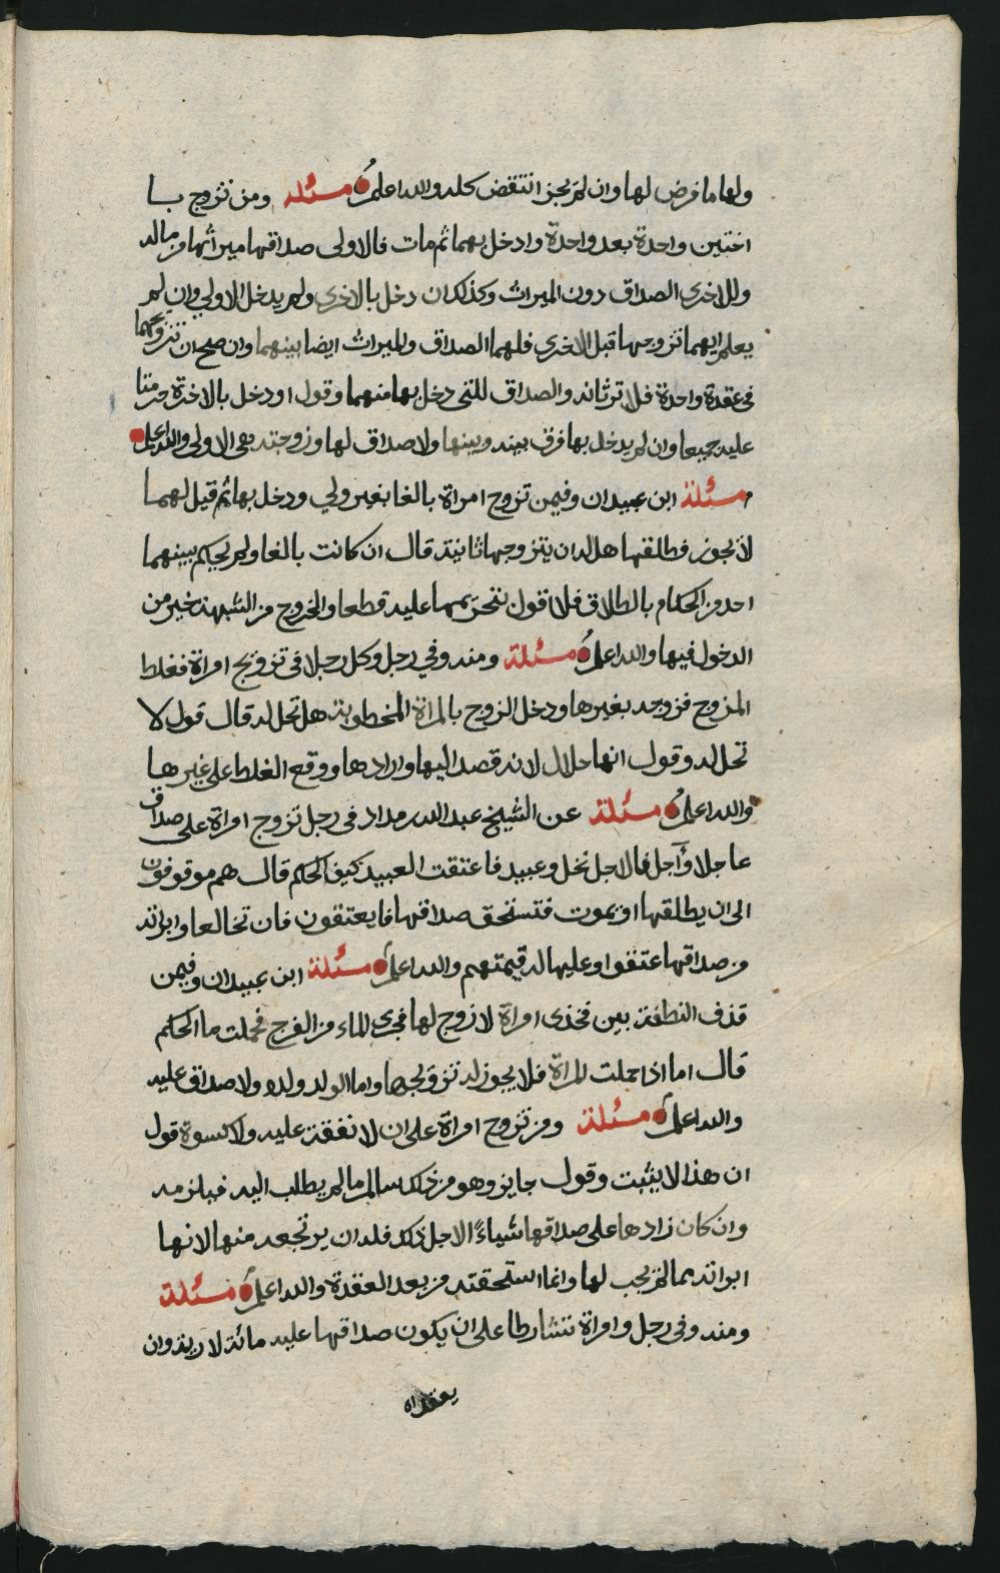 ولها ما فرض لها وان لم يجز انتقض كله والله اعلم مسئلة ومن تزوج با
اختين واحدة بعد واحدة وادخل بهما ثم مات فالاولى صداقها ميراثها من ماله
وللاخرى الصداق دون الميراث وكذلك ان دخل بالاخرى ولم يدخل الاولى وان لم
يعلم ايهما تزوجها قبل الاخرى فلهما الصداق والميراث ايضا بينهما وان صح ان تزوجهما
فى عقدة واحدة فلا ترثانه والصداق للتى دخل بها منهما وقول او دخل بالاخرة حرمتا
عليه جميعا وان لم يدخل بها فرق بينه وبينها ولا صداق لها وزوجته هى الاولى والله اعلم
مسئلة ابن عبيدان وفيمن تزوج امراة بالغا بغير ولي ودخل بها ثم قيل لهما
لا يجوز فطلقها هل له ان يتزوجها ثانية قال ان كانت بالغا ولم يحكم بينهما
احد من الحكام بالطلاق فلا اقول بتحريمها عليه قطعا والخروج من الشبهة خير من
الدخول فيها والله اعلم مسئلة ومنه وفي رجل وكل رجلا فى تزويج امراة فغلط
المزوج فزوجه بغيرها ودخل الزوج بالمراة المخطوبة هل تحل له قال قول لا
تحل له وقول انها حلال لانه قصد اليها وارادها ووقع الغلط على غيرها
والله اعلم مسئلة عن الشيخ عبد الله مداد فى رجل تزوج امراة على صداق
عاجل وآجل فالاجل نخل وعبيد فاعتقت العبيد كيف الحكم قال هم موقوفون
الى ان يطلقها او يموت فتستحق صداقها فايعتقون فان تخالعا وابراته
من صداقها عتقوا وعليها له قيمتهم والله اعلم مسئلة ابن عبيدان وفيمن
قذف النطفة بين فخذى امراة لا زوج لها فجرى الماء من الفرج فحملت ما الحكم
قال اما اذا حملت المراة فلا يجوز له تزويجها واما الولد ولده ولا صداق عليه
والله اعلم مسئلة ومن تزوج امراة على ان لا نفقة عليه ولا كسوة قول
ان هذا لا يثبت وقول جايز وهو من ذلك سالم ما لم يطلب اليه فيلزمه
وان كان زادها على صداقها شياءً لاجل ذلك فله ان يرتجعه منها لانها
ابراته مما لم يجب لها وانما استحقته من بعد العقدة والله اعلم مسئلة
ومنه وفى رجل وامراة تشارطا على ان يكون صداقها عليه مائة لارية وان
يعقداه